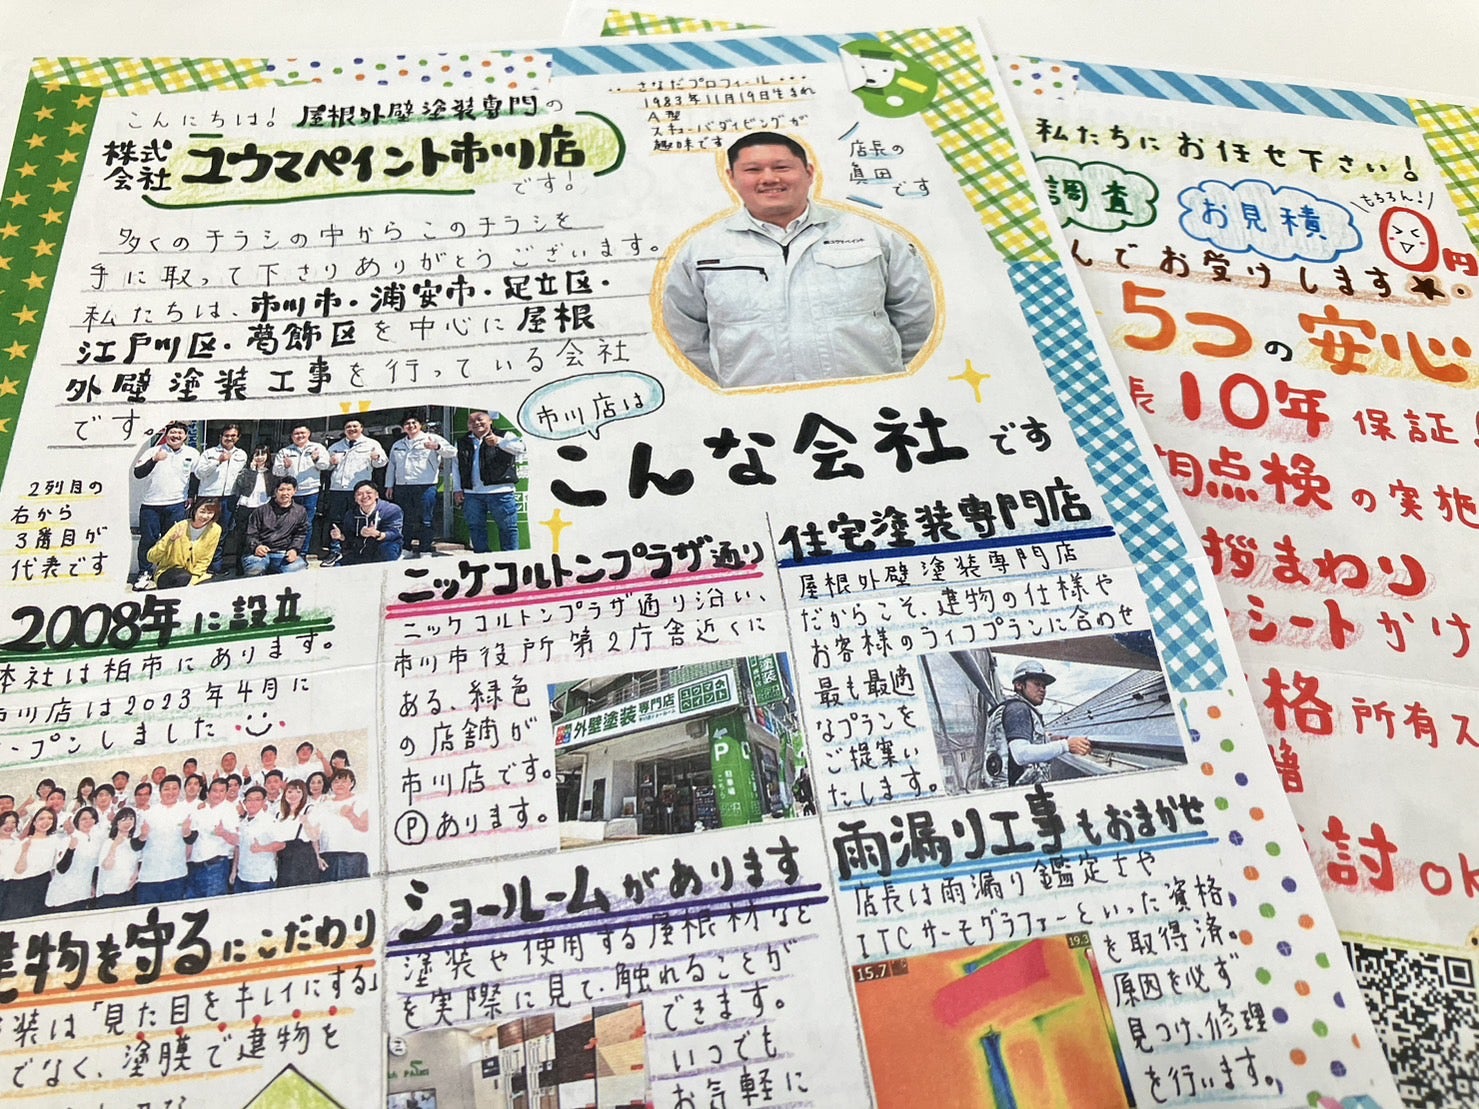 こんにちは! 屋根外壁塗装専門の
株式会社 ユウマペイント市川店
です!
さなだプロフィール・・・
1983年11月19日生まれ
A型
スキューバダイビングが
趣味です
店長の
眞田
です
多くのチラシの中からこのチラシを
手に取って下さりありがとうございます。
私たちは、市川市・浦安市・足立区・
江戸川区・葛飾区を中心に屋根
外壁塗装工事を行っている会社
です。
2列目の
右から
3番目が
代表です
市川店は
こんな会社です
2008年に設立
本社は柏市にあります。
市川店は2023年4月に
オープンしました
ニッケコルトンプラザ通り
ニッケコルトンプラザ通り沿い、
市川市役所第2庁舎近くに
ある、緑色
の店舗が
市川店です。
Pあります。
外壁塗装専門店
ユウマペイント
P
駐車場
こちら
住宅塗装専門店
屋根外壁塗装専門店
だからこそ、建物の仕様や
お客様のライフプランに合わせ
最も最適
なプランを
ご提案い
たします。
建物を守るにこだわり
塗装は「見た目をキレイにする」
でなく、塗膜で建物を
ショールームがあります
塗装や使用する屋根材など
を実際に見て、触れることが
できます。
いつでも
お気軽に
雨漏り工事もおまかせ
店長は雨漏り鑑定士や
ITCサーモグラファーといった資格
を取得済。
原因を必ず
見つけ、修理
を行います。
15.7
19.3
私たちにお任せ下さい!
調査
お見積
もちろん!
0円
んでお受けします
5つの安心
長10年保証
期点検の実施
拶まわり
シートかけ
格所有ス
討OK